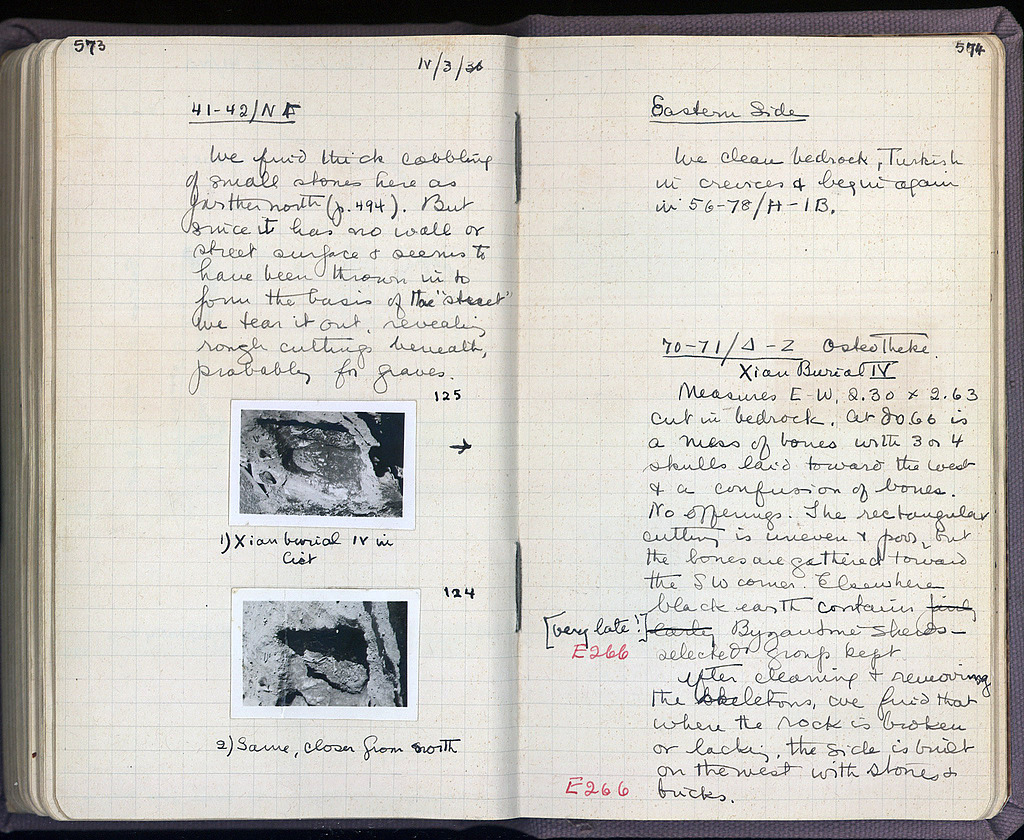 573
IV/3/36
41-42/NΓ
We find thick cobbling
of small stones here as
farther north (p. 494). But
since it has no wall or
street surface & seems to
have been thrown in to
form the basis of the "street"
we tear it out, revealing
rough cuttings beneath,
probably for graves.
125
→
1) Xian burial IV in
Cist
124
2) Same, closer from north
574
Eastern Side
We clean bedrock, Turkish
in crevices & begin again
in 56-78/H-IB.
70-71/Δ-Z Osteotheke.
Xian Burial IV
Measures E-W, 2.30 x 2.63
cut in bedrock. At 80.66 is
a mess of bones with 3 or 4
skulls laid toward the west
& a confusion of bones.
No offerings. The rectangular
cutting is uneven & poor, but
the bones are gathered toward
the SW corner. Elsewhere
black earth contains fairly
[very late!] early Byzantine sherds –
E266
selected group kept.
After cleaning & removing
the skeletons, we find that
where the rock is broken
or lacking, the side is built
on the west with stones &
E266
bricks.